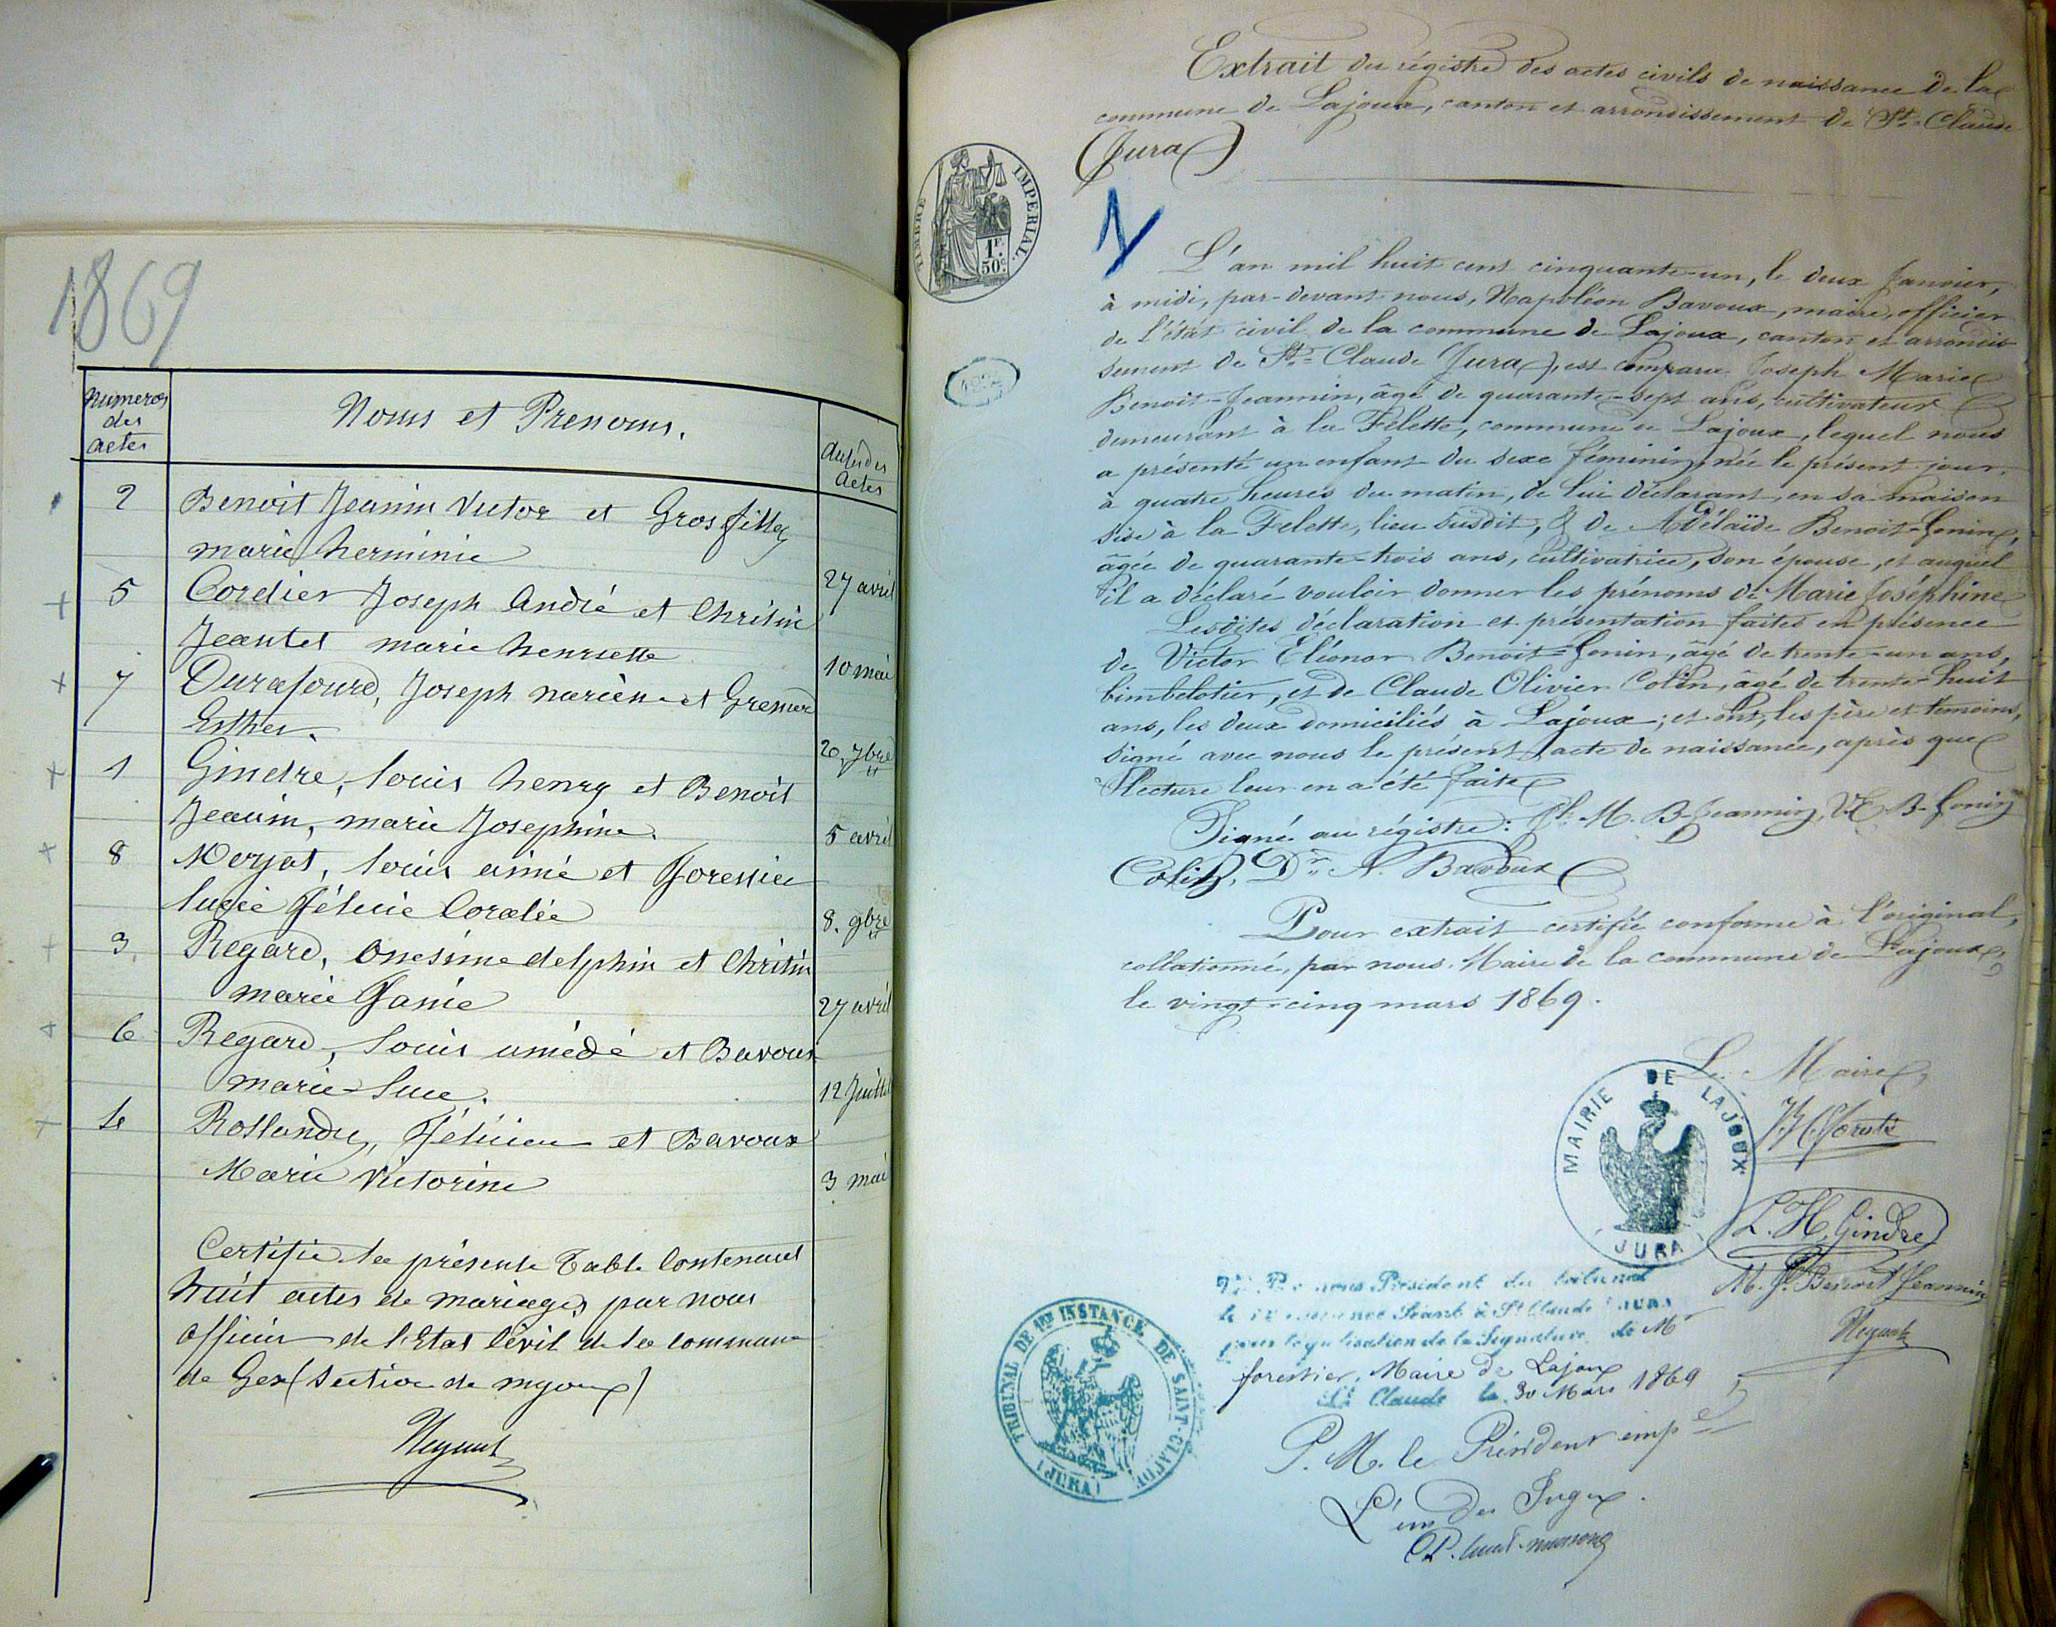 1869
Numeros
des
actes
Noms et Prenoms.
actes
2 Benoit Jeanin Victor et Grosfilley
marie herminie
27 avril
5 Cordier Joseph André et Chritin
Jeantet marie henriette
10 mai
7 Durafourd, Joseph narcisse et Grenier
Esther.
20 7bre
1 Gindre, Louis henry et Benoit
Jeanin, marie Josephine.
5 avril
8 louis aimé et forestier
lucie Félicie Coralie
8. 9bre
3, Regard, onesime delphin et Chritin
marie fanie
27 avril
6 Regard, Louis amédé et Bavoux
marie-luce.
12 Juillet
4 Rollandez, Félicien et Bavoux
Marie Victorine
3 mai
Certifié la présente Table Contenant
huit actes de mariages par nous
officier de l'Etat Civil de la commune
de Gex (Section de mijoux)
Extrait du régistre des actes civils de naissance de la
commune de Lajoux, canton et arrondissement de St.-Claude
(Jura)
TIMBRE IMPERIAL.
1F.
50c
1
L'an mil huit cent cinquante-un, le deux Janvier,
à midi, par-devant nous, Napoléon Bavoux, maire, officier
de l'état civil de la commune de Lajoux, canton et arrondis
sement de St.-Claude (Jura), est comparu Joseph Marie
Benoit-Jeannin, âgé de quarante-sept ans, cultivateur
demeurant à la Félette, commune de Lajoux, lequel nous
a présenté un enfant du sexe féminin, née le présent jour,
à quatre heures du matin, de lui déclarant, en sa maison
sise à la Felette, lieu susdit, & de Adélaïde Benoit-Gonin,
âgée de quarante-trois ans, cultivatrice, son épouse, et auquel
il a déclaré vouloir donner les prénoms de Marie Joséphine
Lesdites déclaration et présentation faites en présence
de Victor Eléonor Benoit-Gonin, âgé de trente-un ans,
bimbelotier, et de Claude Olivier Colin, âgé de trente-huit
ans, les deux domiciliés à Lajoux; et ont, les père et témoins,
signé avec nous le présent acte de naissance, après que
lecture leur en a été faite
Signé au régistre: Jh. M. B-Jeannin, V. E. B-Gonin
Colin, Dr. N. Bavoux
Pour extrait certifié conforme à l'original,
collationné, par nous, Maire de la commune de Lajoux,
le vingt-cinq mars 1869.
Le Maire,
MAIRIE DE LAJOUX
JURA
L. H. Gindre
M. J. Benoit Jeannin
nous Président du tribunal
Séant à St Claude JURA
pour légalisation de la Signature de Mr
forestier, Maire de Lajoux
St Claude le 30 Mars 1869
TRIBUNAL DE 1ERE INSTANCE DE SAINT-CLAUDE
(JURA)
P. M. le Président emp
L'un des Juges.